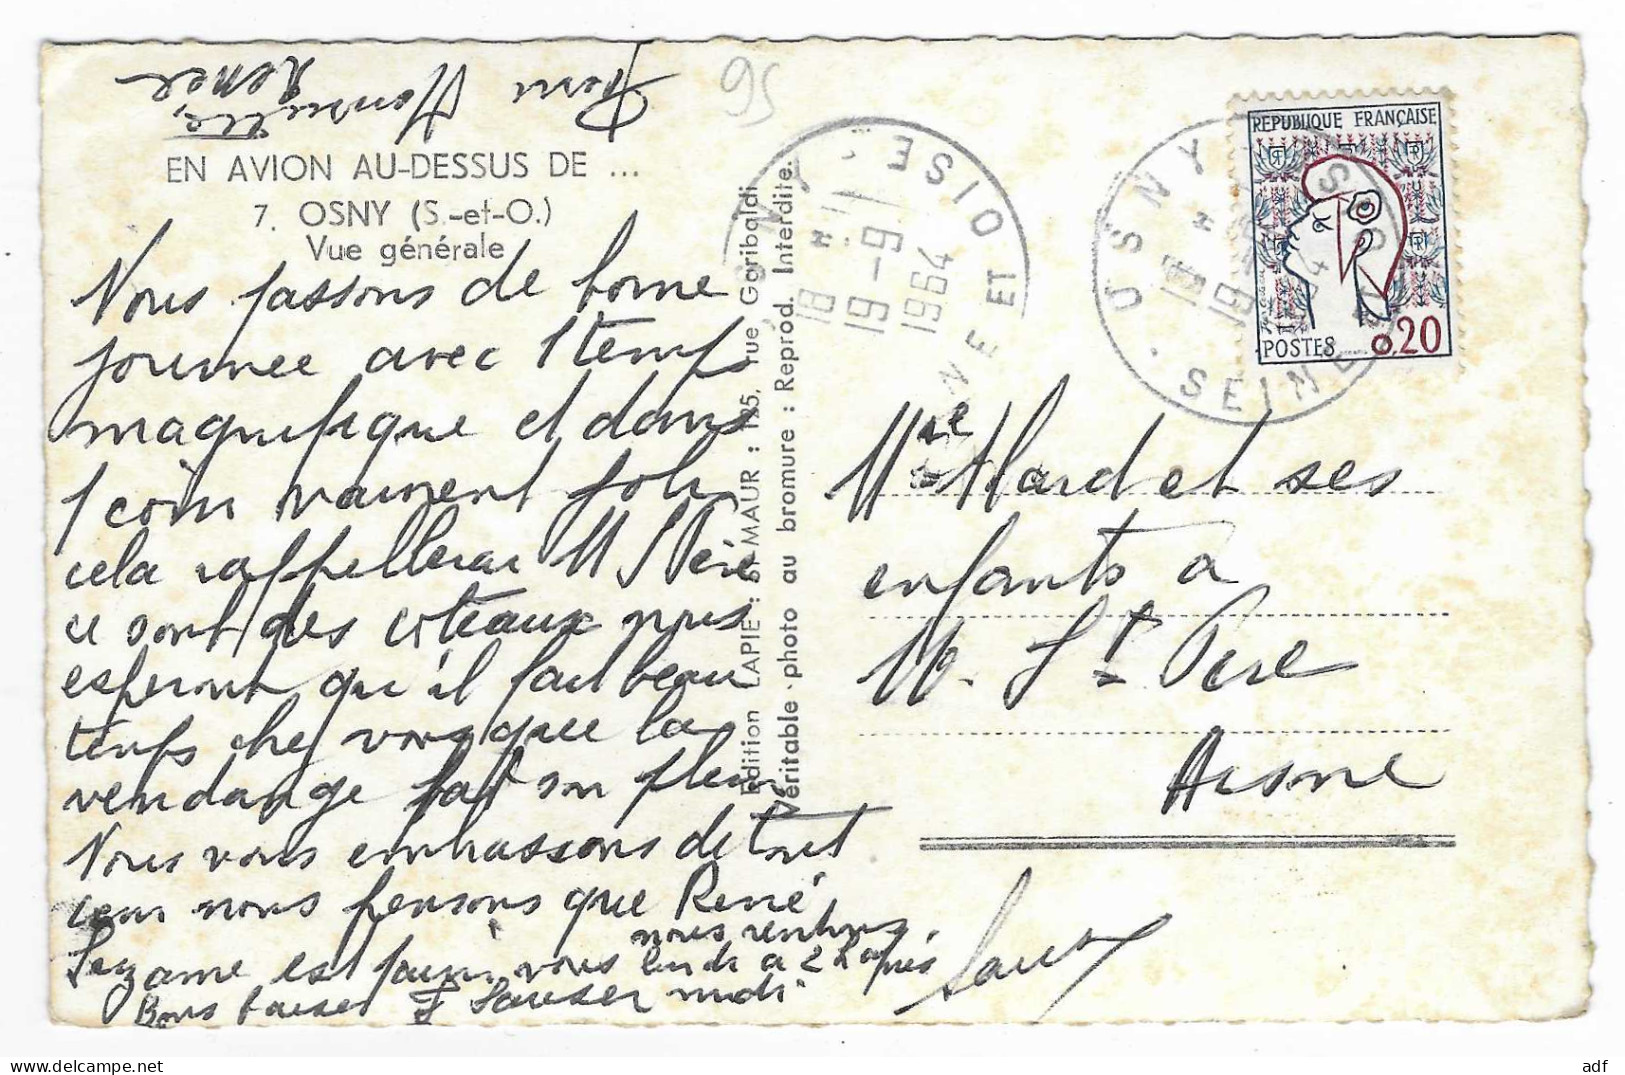 95
EN AVION AU-DESSUS DE ...
7. OSNY (S.-et-O.)
Vue générale
Nous passons de bonne
journee avec 1 temps
magnifique et dans
1 coin vraiment joli
cela rappellerai M St Père
ce sont des coteaux nous
esperont qu'il fait beau
temps chez vous que la
vendange fait son plein
Nous vous embrassons de tout
cœur nous pensons que René,
Suzanne est parmi vous
nous rentrons
lundi a 2 h après
midi.
Bons baiser
Edition LAPIE : ST MAUR : 125, rue Garibaldi
Véritable photo au bromure : Reprod. Interdite.
OSNY
SEINE ET OISE
18 H
19-9
1964
OSNY
SEINE
18 H
REPUBLIQUE FRANÇAISE
POSTES 0.20
Mme Allard et ses
enfants a
M. St Pere
Aisne
adf